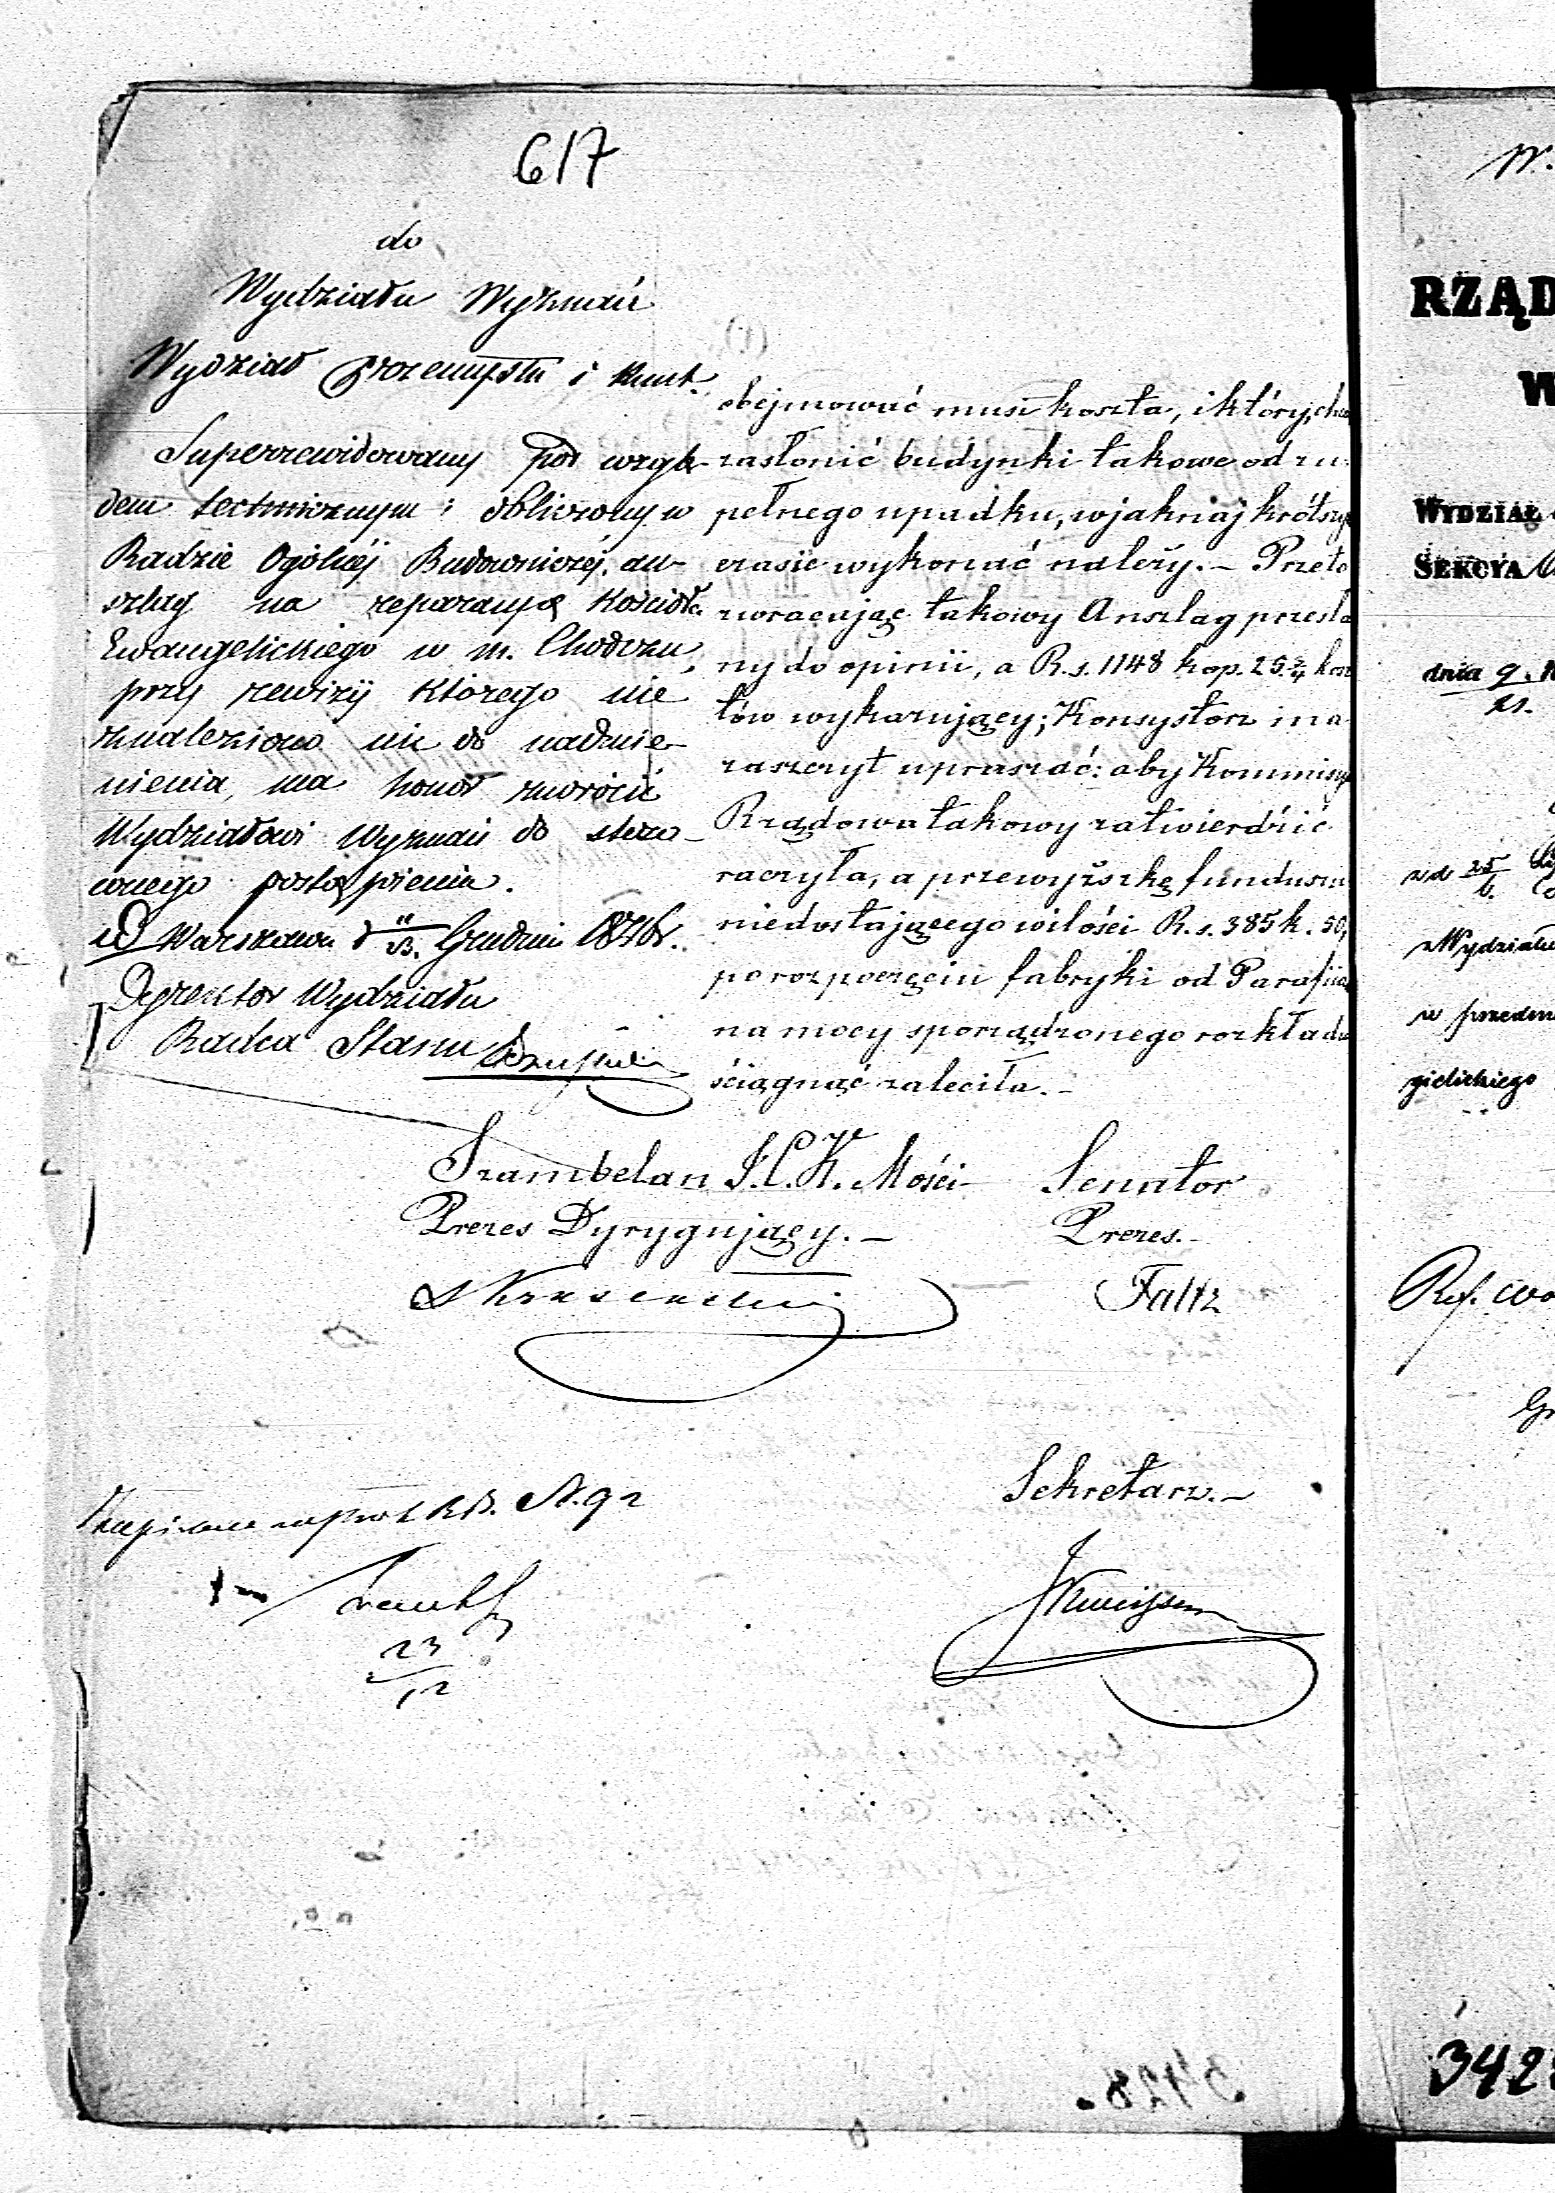 617
do
Wydziału Wyznań
Wydział Przemysłu i Kunt.
Superrewidowany pod wzglę-
dem technicznym i obliczony w
Radzie Ogólnéj Budowniczéj, an-
szlag na reparacyę Kościoła
Ewangelickiego w m. Chodczu,
przy rewizyi którego nie
znaleziono nic do nadmie-
nienia, ma honor zwrócić
Wydziałowi Wyznań do stoso-
wnego postąpienia.
w Warszawie d 11/23. Grudnia 1846 r.
Dyrektor Wydziału
Radca Stanu
obejmować musi koszta, i których chcąc
zasłonić budynki takowe od zu-
pełnego upadku, w jaknajkrótszym
czasie wykonać należy. – Przeto
zwracając takowy Anszlag przesła-
ny do opinii, a R.s. 1148 kop. 25 3/4 kosz
tów wykazujący; Konsystorz ma
zaszczyt upraszać: aby Kommisya
Rządowa takowy zatwierdzić
raczyła, a przewyższkę funduszu
niedostającego w ilości R.s. 385 k. 50,
po rozpoczęciu fabryki od Parafian
na mocy sporządzonego rozkładu
ściągnąć zaleciła. –
Szambelan J.C.K. Mości Senator
Prezes Dyrygujący. – Prezes. –
Faltz
Sekretarz. –
N. 92
23/12
3428.
W.
RZĄD
W
WYDZIAŁ
SEKCYA
dnia 9.
21.
z d 25/6.
z Wydziału
w przedm
gielickiego
Ref.
342